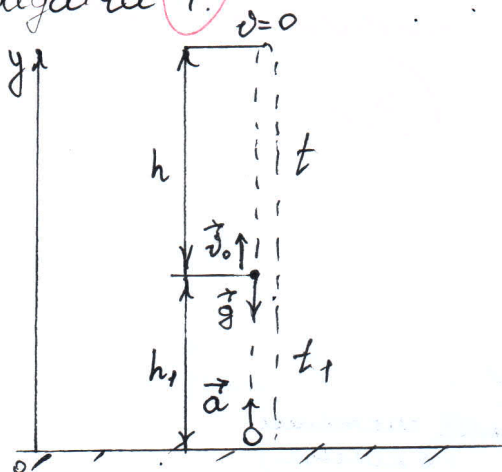 1.
v=0
y
h
t
v⃗₀
g⃗
h₁
t₁
a⃗
0